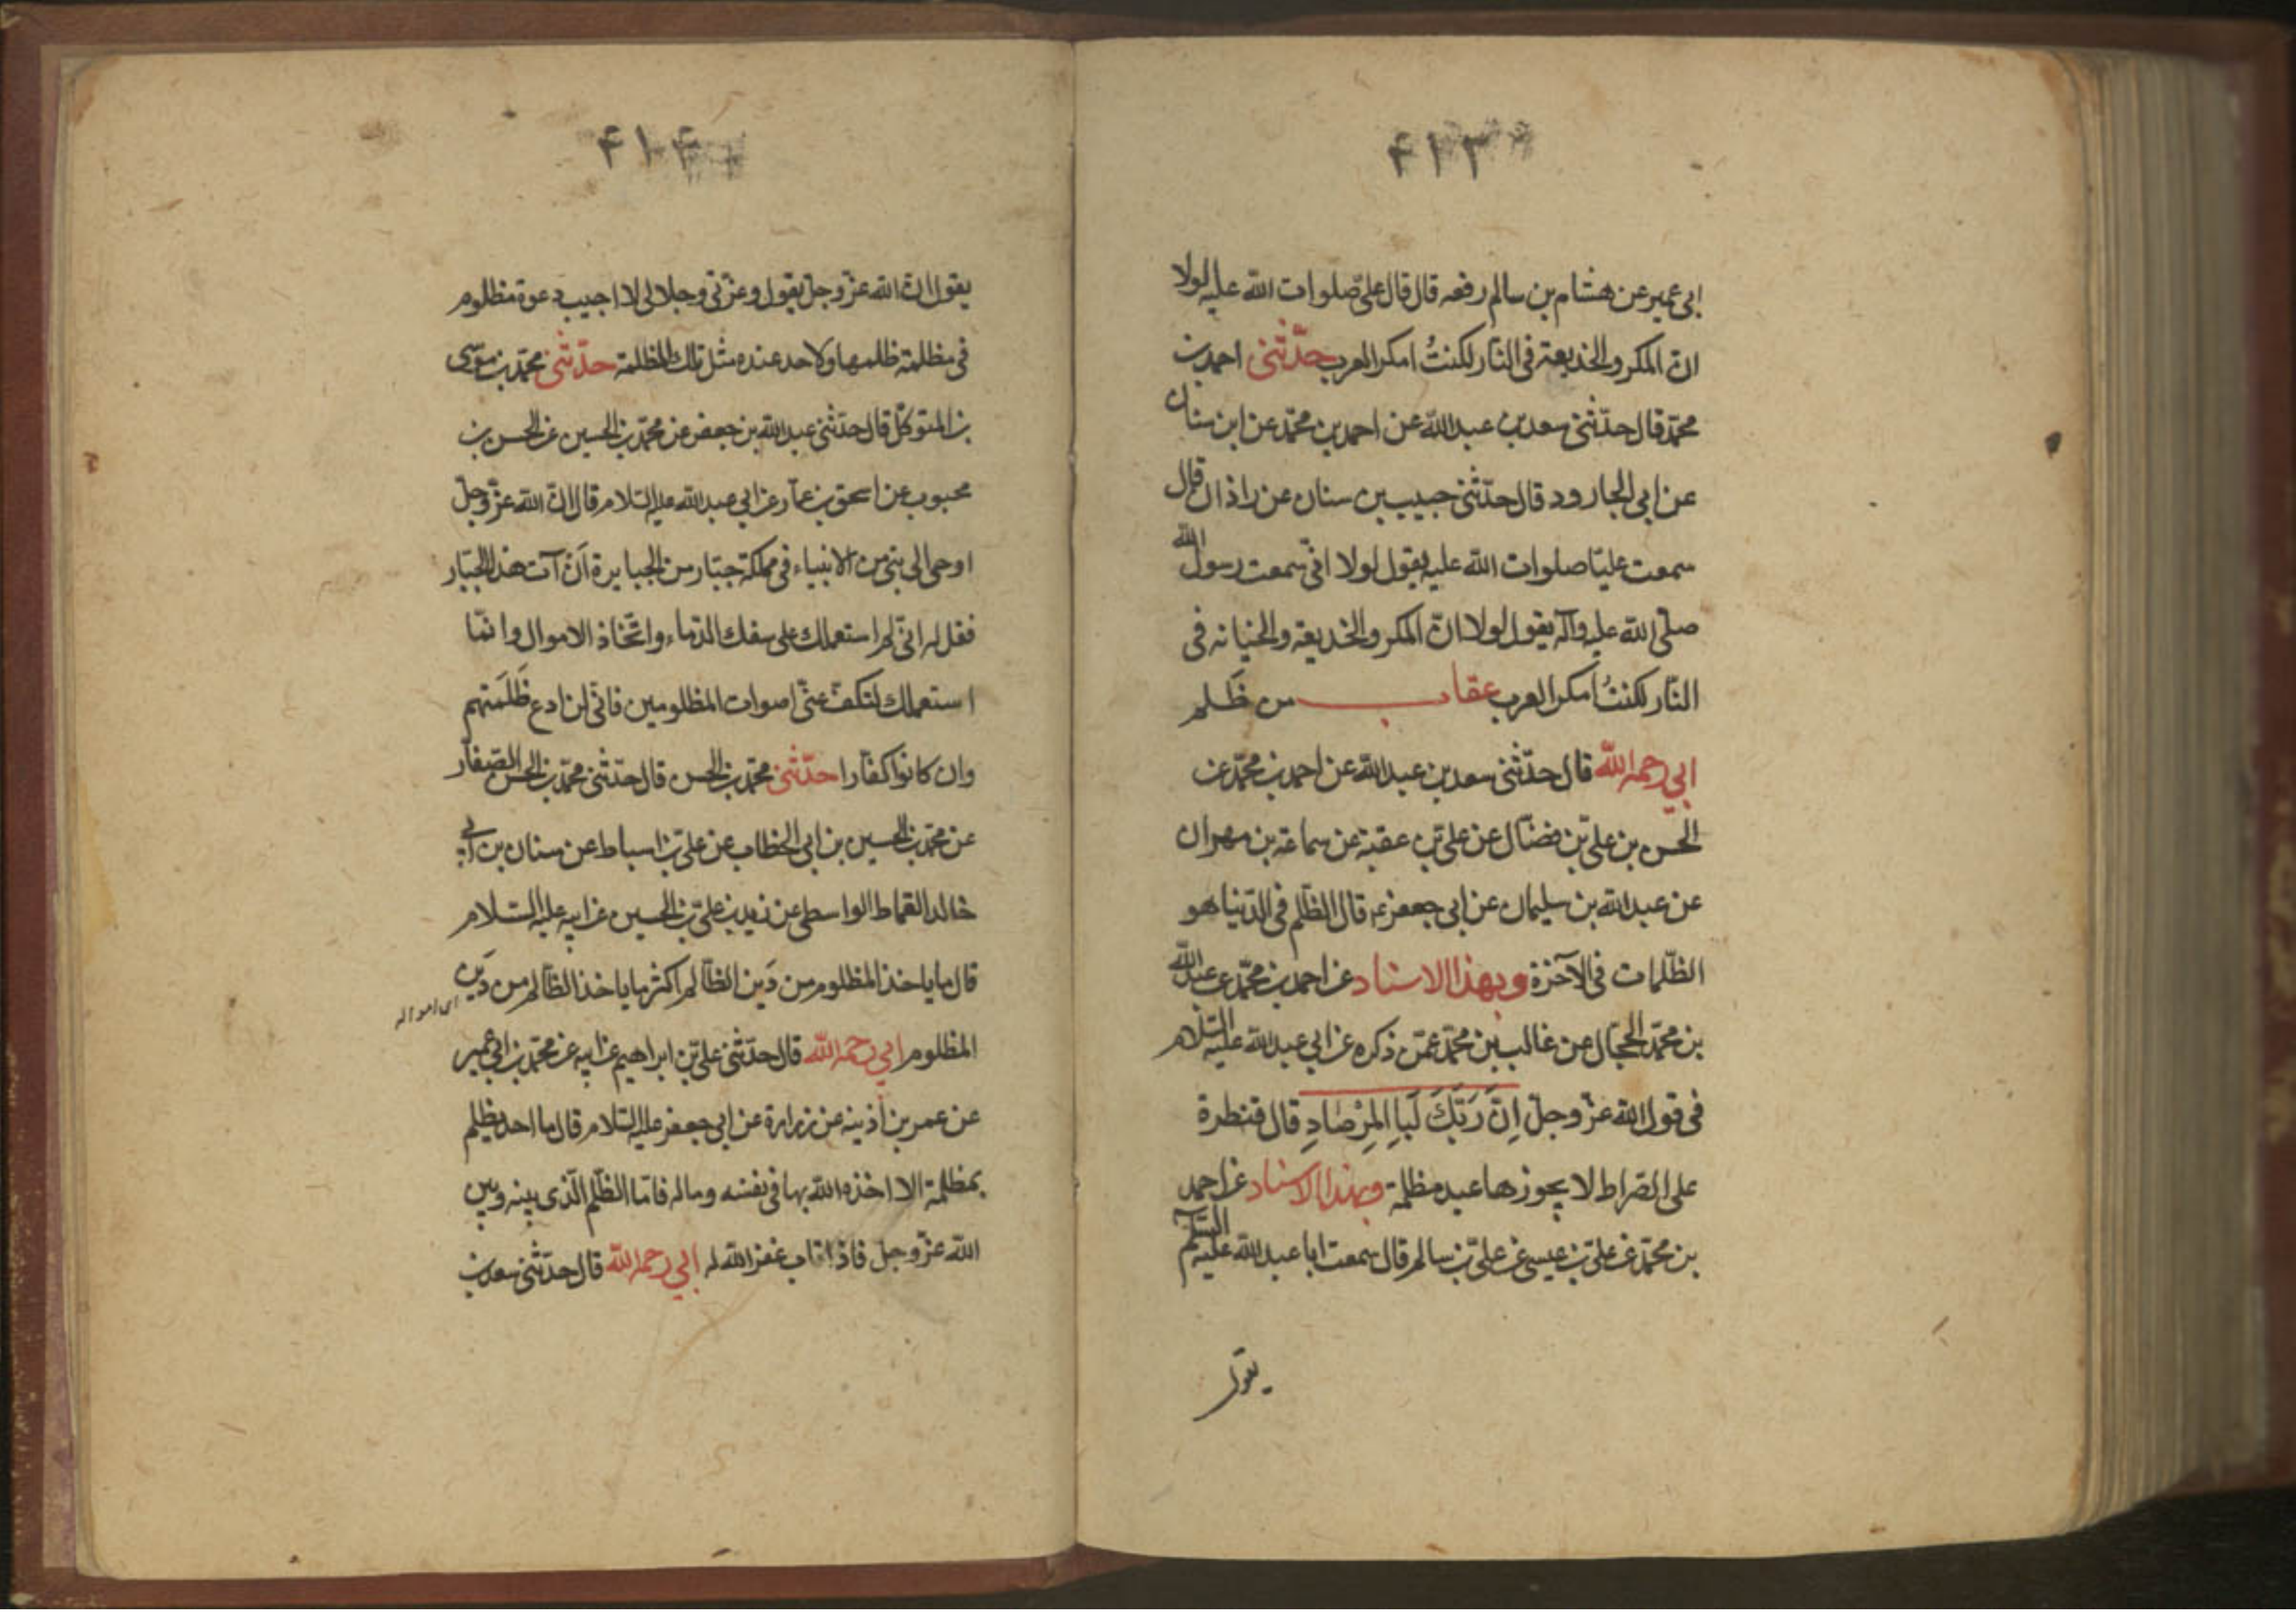 ۴۱۳
ابی عمیر عن هشام بن سالم رفعه قال قال علیّ صلوات الله علیه لولا
انّ المکر والخدیعة فی النّار لکنتُ امکر العرب حدّثنی احمد بن
محمّد قال حدّثنی سعد بن عبد الله عن احمد بن محمّد عن ابن سنان
عن ابی الجارود قال حدّثنی حبیب بن سنان عن زاذان قال
سمعت علیّا صلوات الله علیه یقول لولا انّی سمعت رسول الله
صلّی الله علیه وآله یقول لولا انّ المکر والخدیعة والخیانه فی
النّار لکنتُ امکر العرب عقاب من ظَلم
ابی رحمه الله قال حدّثنی سعد بن عبد الله عن احمد بن محمّد عن
الحسن بن علیّ بن فضّال عن علیّ بن عقبة عن سماعة بن مهران
عن عبد الله بن سلیمان عن ابی جعفر ع قال الظّلم فی الدّنیا هو
الظّلمات فی الآخرة وبهذا الاسناد عن احمد بن محمّد عن عبد الله
بن محمّد الحجّال عن غالب بن محمّد عمّن ذکره عن ابی عبد الله علیه السّلام
فی قول الله عزّ وجلّ اِنَّ رَبَّکَ لَبِالمِرْصَادِ قال قنطرة
علی الصّراط لا یجوزها عبد مظلمة وبهذا الاسناد عن احمد
بن محمّد عن علیّ بن عیسی عن علیّ بن سالم قال سمعت ابا عبد الله علیه السّلم
یقول
۴۱۴
یقول انّ الله عزّ وجلّ یقول وعزّتی وجلالی لا اجیب دعوة مظلوم
فی مظلمة ظلمها ولاحد عنده مثل تلک المظلمة حدّثنی محمّد بن موسی
بن المتوکّل قال حدّثنی عبد الله بن جعفر عن محمّد بن الحسین عن الحسن بن
محبوب عن اسحق بن عمّار عن ابی عبد الله علیه السّلام قال انّ الله عزّ وجلّ
اوحی الی نبیّ من الانبیاء فی مملکة جبّار من الجبابرة اَن آت هذا الجبّار
فقل له انّی لم استعملک علی سفک الدّماء واتّخاذ الاموال وانّما
استعملک لتکفّ عنّی اصوات المظلومین فانّی لن ادع ظَلَمَتهم
وان کانوا کفّارا حدّثنی محمّد بن الحسن قال حدّثنی محمّد بن الحسن الصّفّار
عن محمّد بن الحسین بن ابی الخطّاب عن علیّ بن اسباط عن سنان بن ابی
خالد القماط الواسطی عن زید بن علیّ بن الحسین عن ابیه علیه السّلام
قال ما یاخذ المظلوم من دَین الظّالم اکثر ما یاخذ الظّالم من دَین
ای امواله
المظلوم ابی رحمه الله قال حدّثنی علیّ بن ابراهیم عن ابیه عن محمّد بن ابی عمیر
عن عمر بن اُذینه عن زرارة عن ابی جعفر علیه السّلام قال ما احد یظلم
بمظلمة الا اخذه الله بها فی نفسه وماله فامّا الظّلم الّذی بینه وبین
الله عزّ وجلّ فاذا تاب غفر الله له ابی رحمه الله قال حدّثنی سعد بن